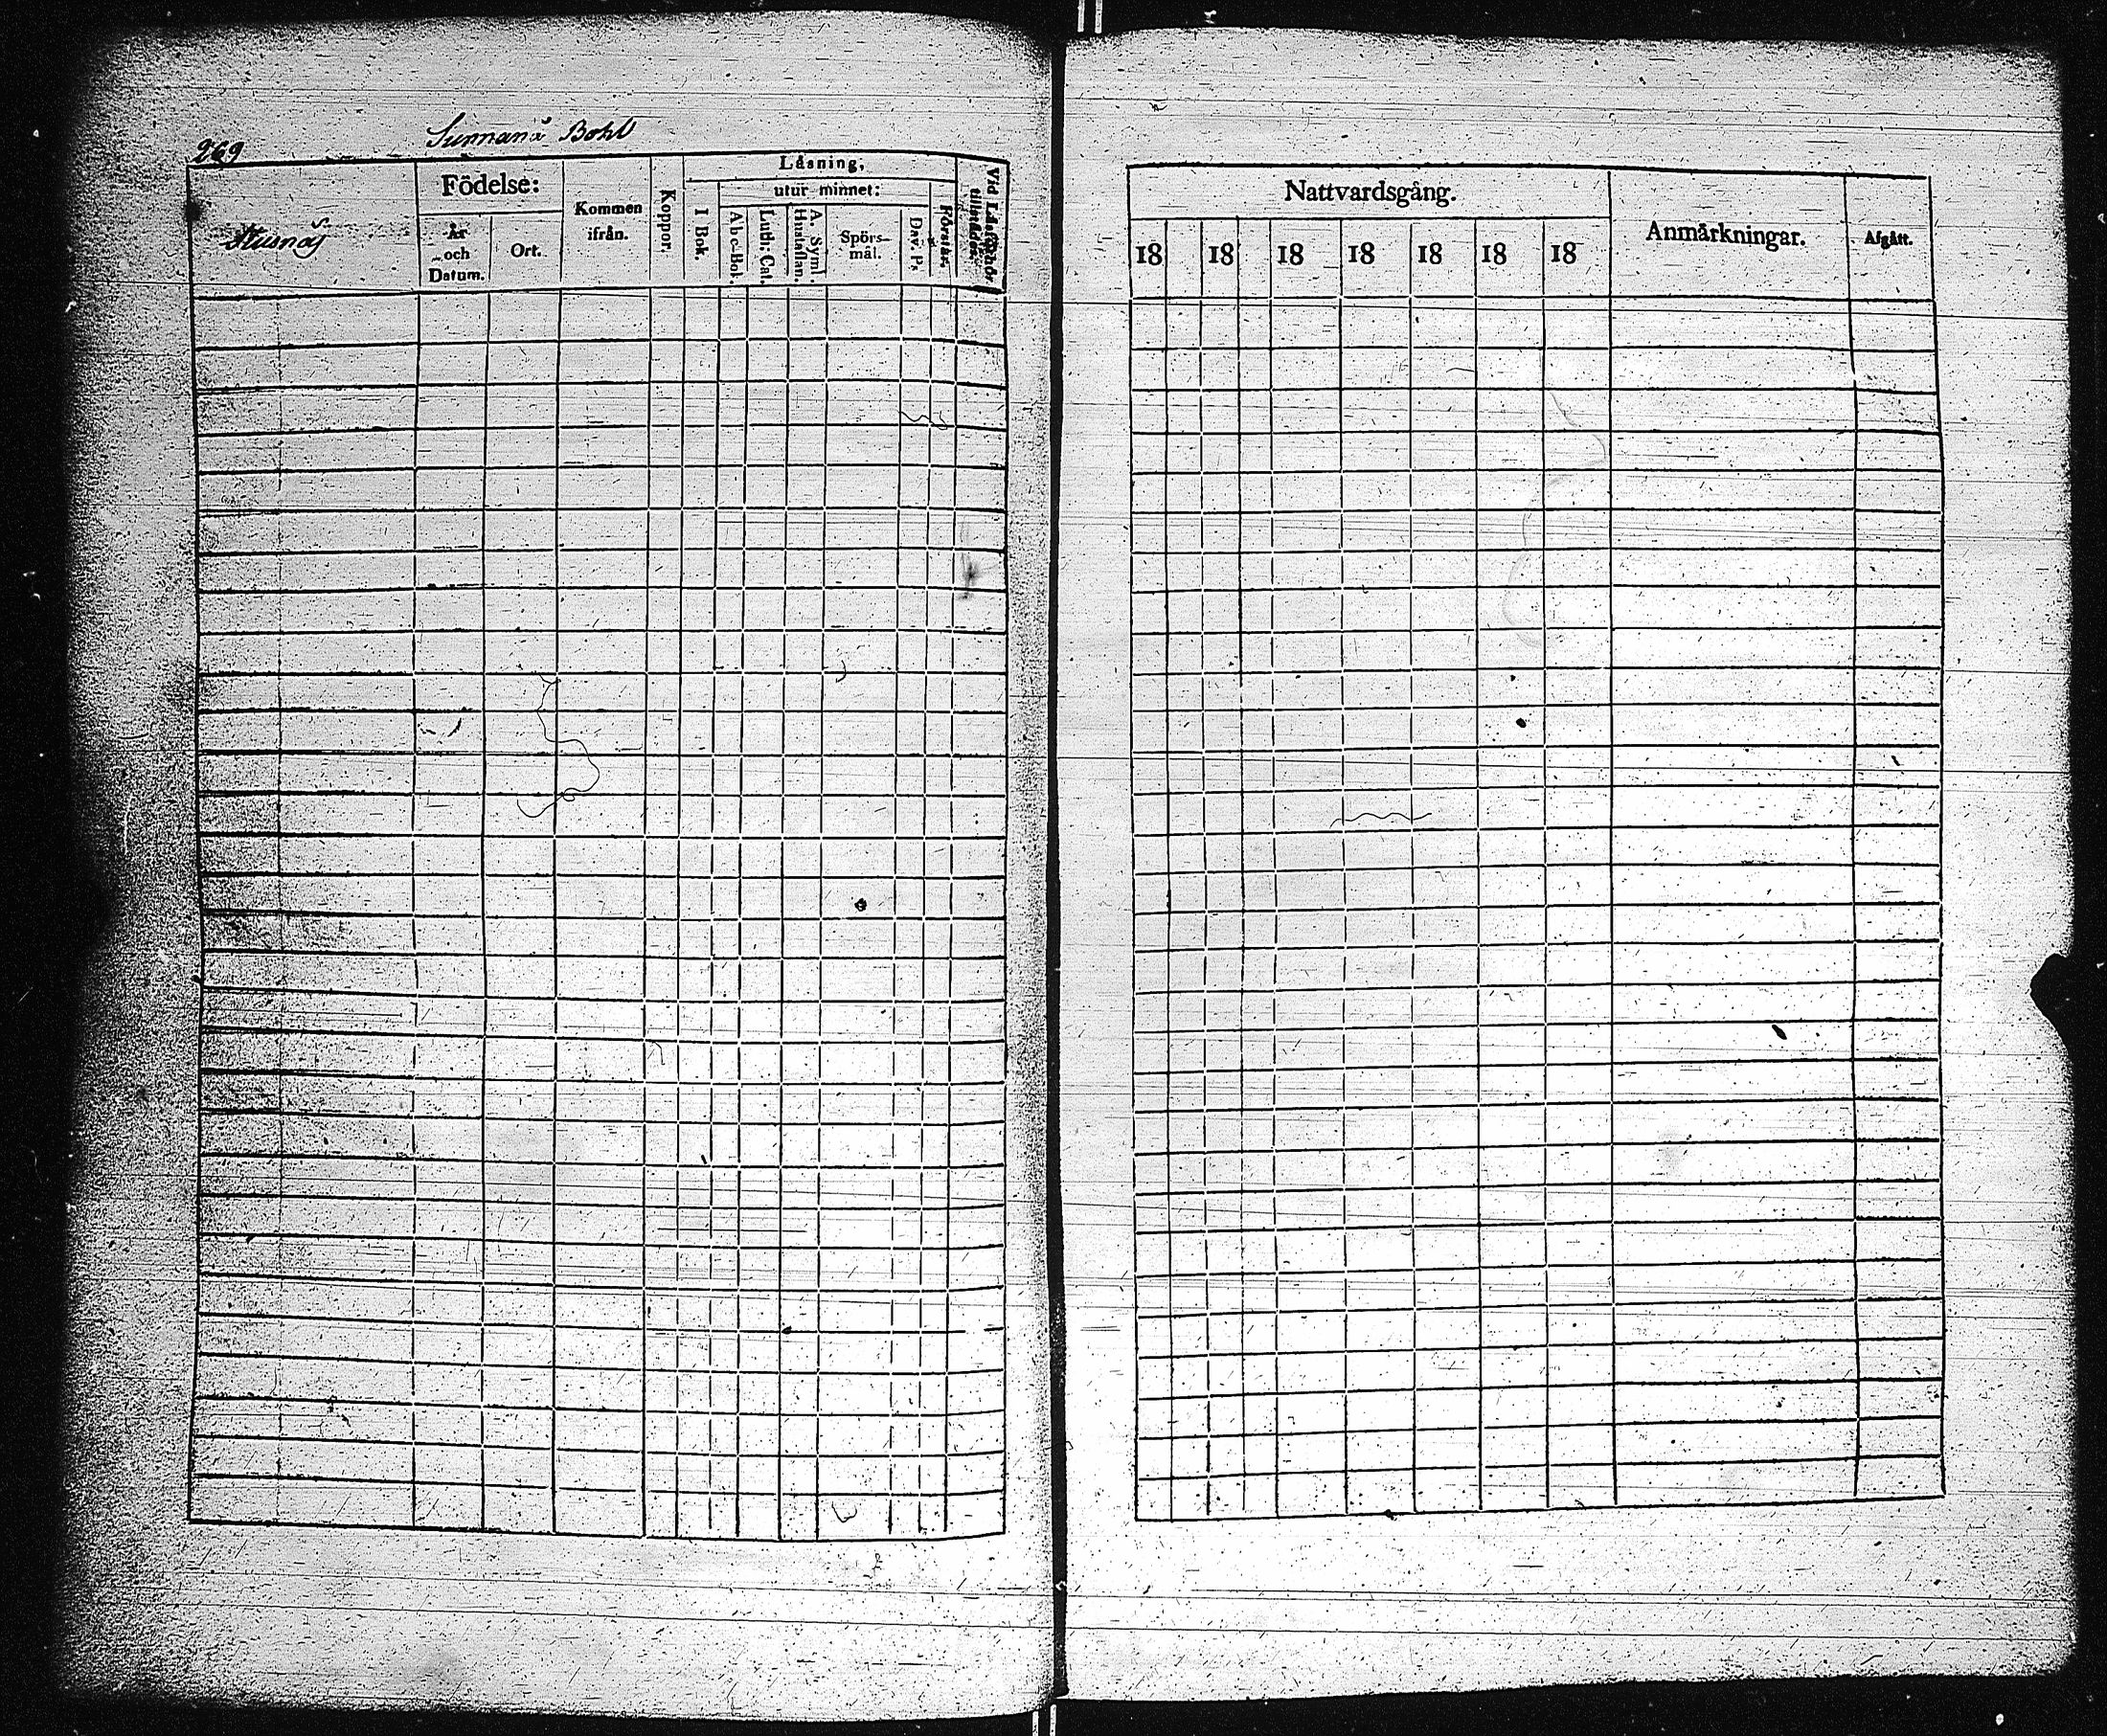 269
Sunnanå Bohl
Husnäs
Födelse:
År och Datum.
Ort.
Kommen ifrån.
Koppor.
Läsning,
I Bok.
utur minnet:
Abc-Bok.
Luth: Cat.
A. Symb. Hustaflan.
Spörs-mål.
Dav. Ps
Förstår.
Nattvardsgång.
18 18 18 18 18 18 18
Anmärkningar.
Afgått.